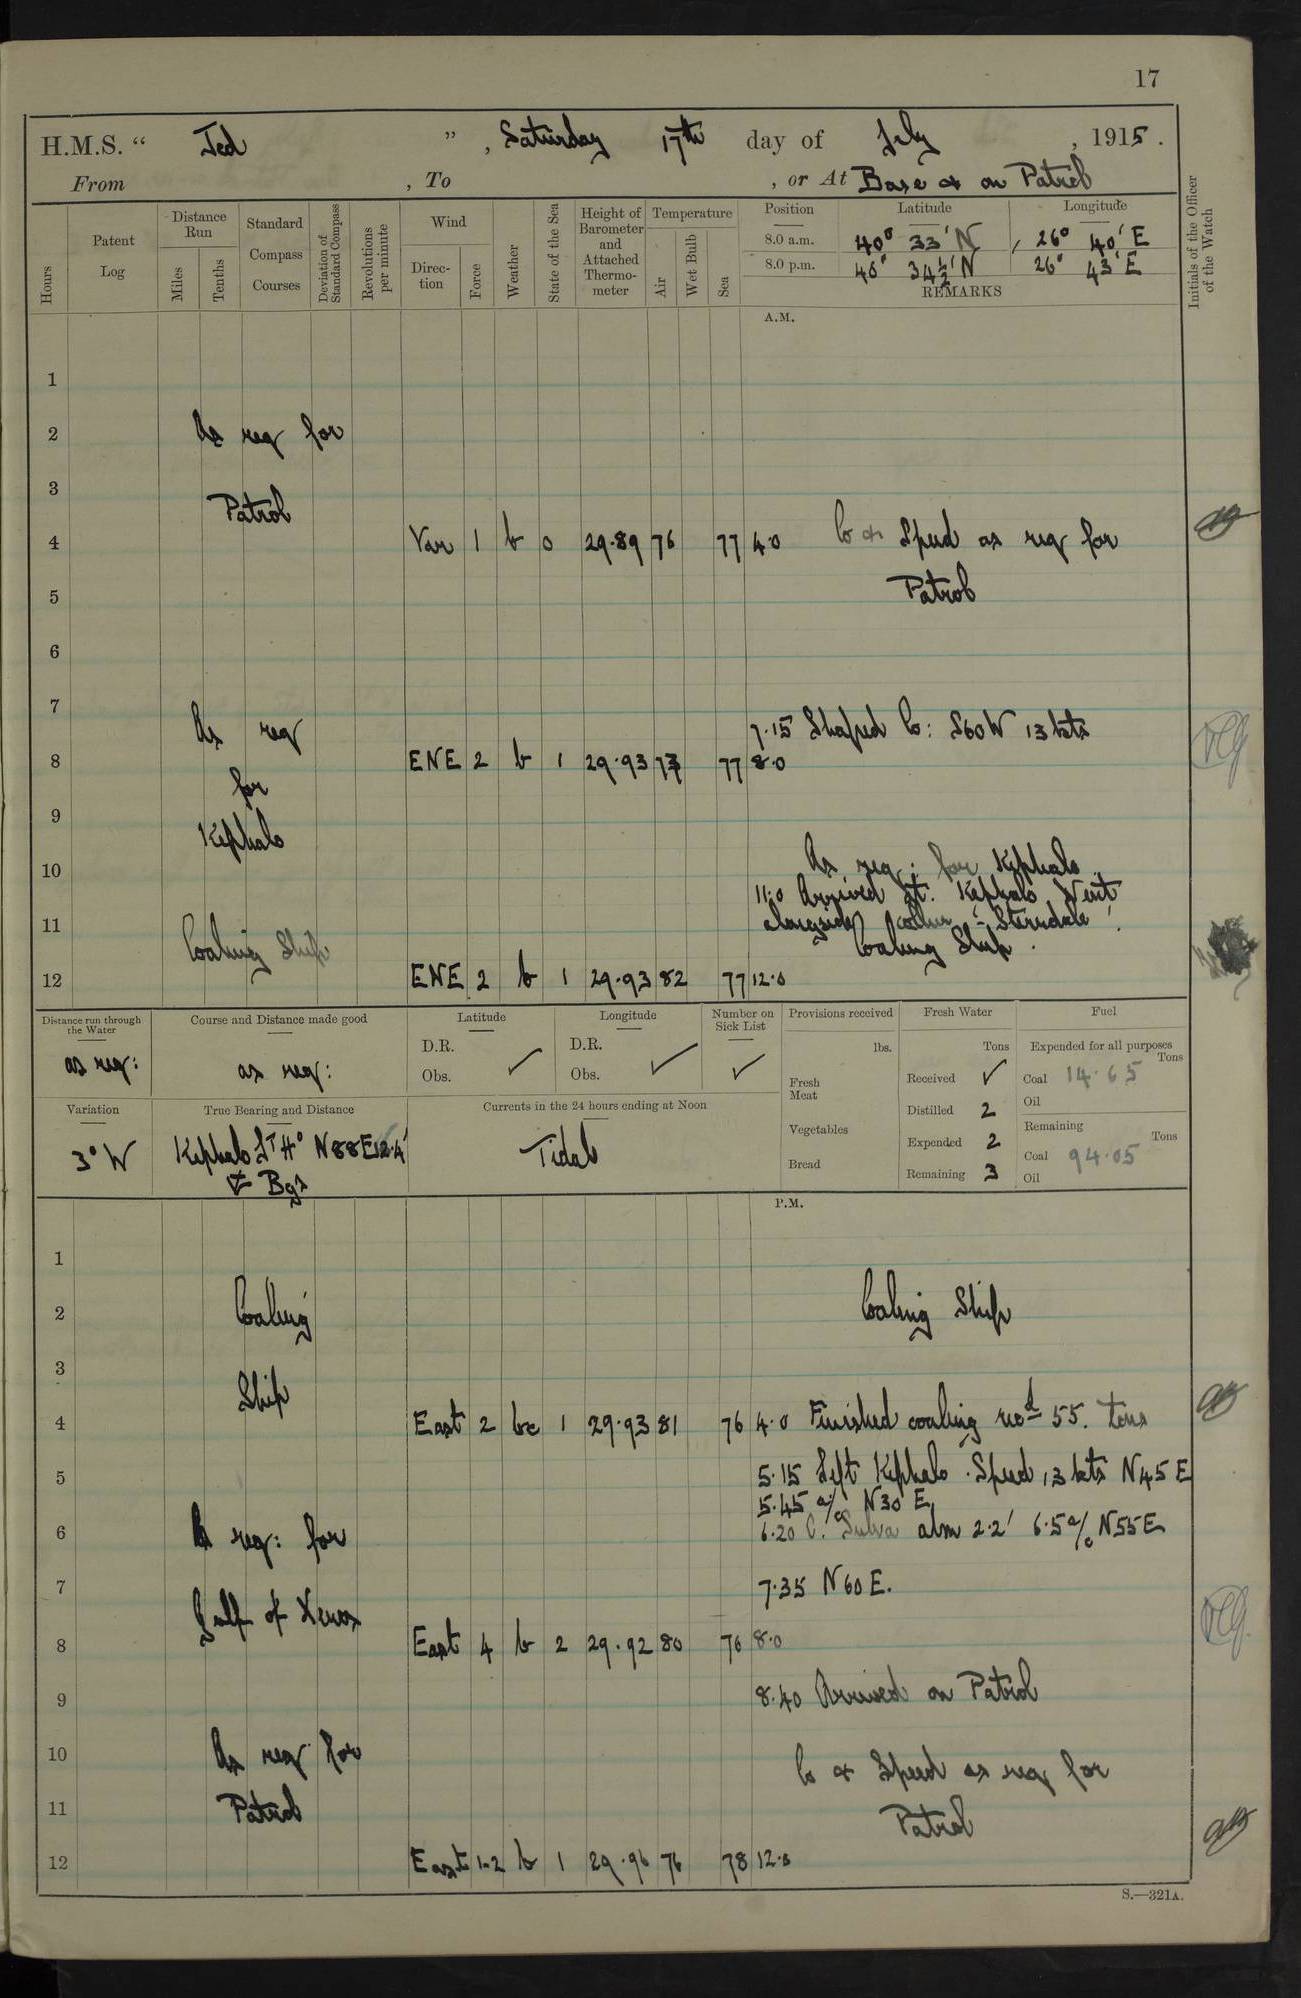 17
H.M.S. “ Jed ” , Saturday 17th day of July , 1915.
From , To , or At Base & on Patrol
Hours
Patent Log
Distance Run
Miles
Tenths
Standard Compass Courses
Deviation of Standard Compass
Revolutions per minute
Wind
Direc-tion
Force
Weather
State of the Sea
Height of Barometer and Attached Thermo-meter
Temperature
Air
Wet Bulb
Sea
Position Latitude Longitude
8.0 a.m. 40° 33' N , 26° 40' E
8.0 p.m. 40° 34½' N 26° 43' E
REMARKS
Initials of the Officer of the Watch
A.M.
1
2 As req for
3 Patrol
4 Var 1 b 0 29.89 76 77 4.0 Co & Speed as req for
5 Patrol
6
7 As req 7.15 Shaped Co: S60W 13 kts
8 ENE 2 b 1 29.93 77 8.0
for
9
Kephalo
10 As req: for Kephalo
11.0 Arrived Pt. Kephalo Went
11 alongside Collier "Sterndale"
Coaling Ship Coaling Ship.
12 ENE 2 b 1 29.93 82 77 12.0
Distance run through the Water
as req:
Course and Distance made good
as req:
Latitude
D.R.
Obs. ✓
Longitude
D.R.
Obs. ✓
Number on Sick List
✓
Provisions received
lbs.
Fresh Meat
Vegetables
Bread
Fresh Water
Tons
Received ✓
Distilled 2
Expended 2
Remaining 3
Fuel
Expended for all purposes
Tons
Coal 14.65
Oil
Remaining
Tons
Coal 94.05
Oil
Variation
3° W
True Bearing and Distance
Kephalo Lt Ho N88E 12.4'
Bgs
Currents in the 24 hours ending at Noon
Tidal
P.M.
1
2 Coaling Coaling Ship
3
Ship
4 East 2 bc 1 29.93 81 76 4.0 Finished coaling recd 55. tons
5 5.15 Left Kephalo. Speed 13 kts N45E
5.45 a/c N30E
6 As req: for 6.20 C. Suvla abm 2.2' 6.5 a/c N55E
7 Gulf of Xeros 7.35 N60E.
8 East 4 b 2 29.92 80 76 8.0
9 8.40 Arrived on Patrol
10 As req for Co & Speed as req for
11 Patrol Patrol
12 East 1-2 b 1 29.96 76 78 12.0
S.—321A.